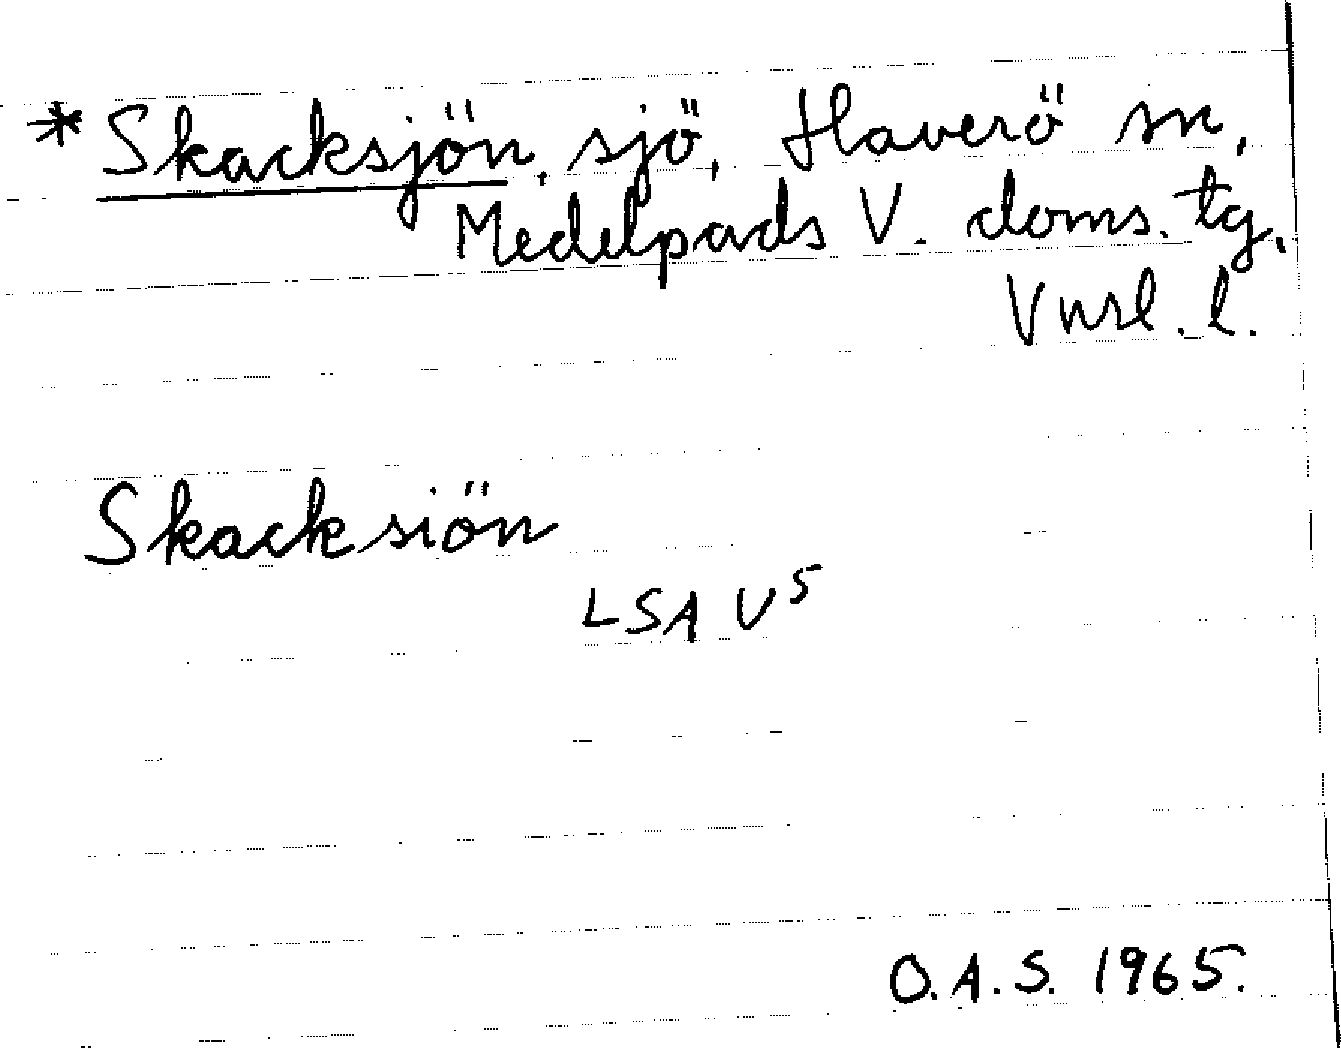 *Skacksjön, sjö, Haverö sn,
Medelpads V. doms. tg,
Vnrl. l.
Skacksiön
LSA V5
O.A.S. 1965.